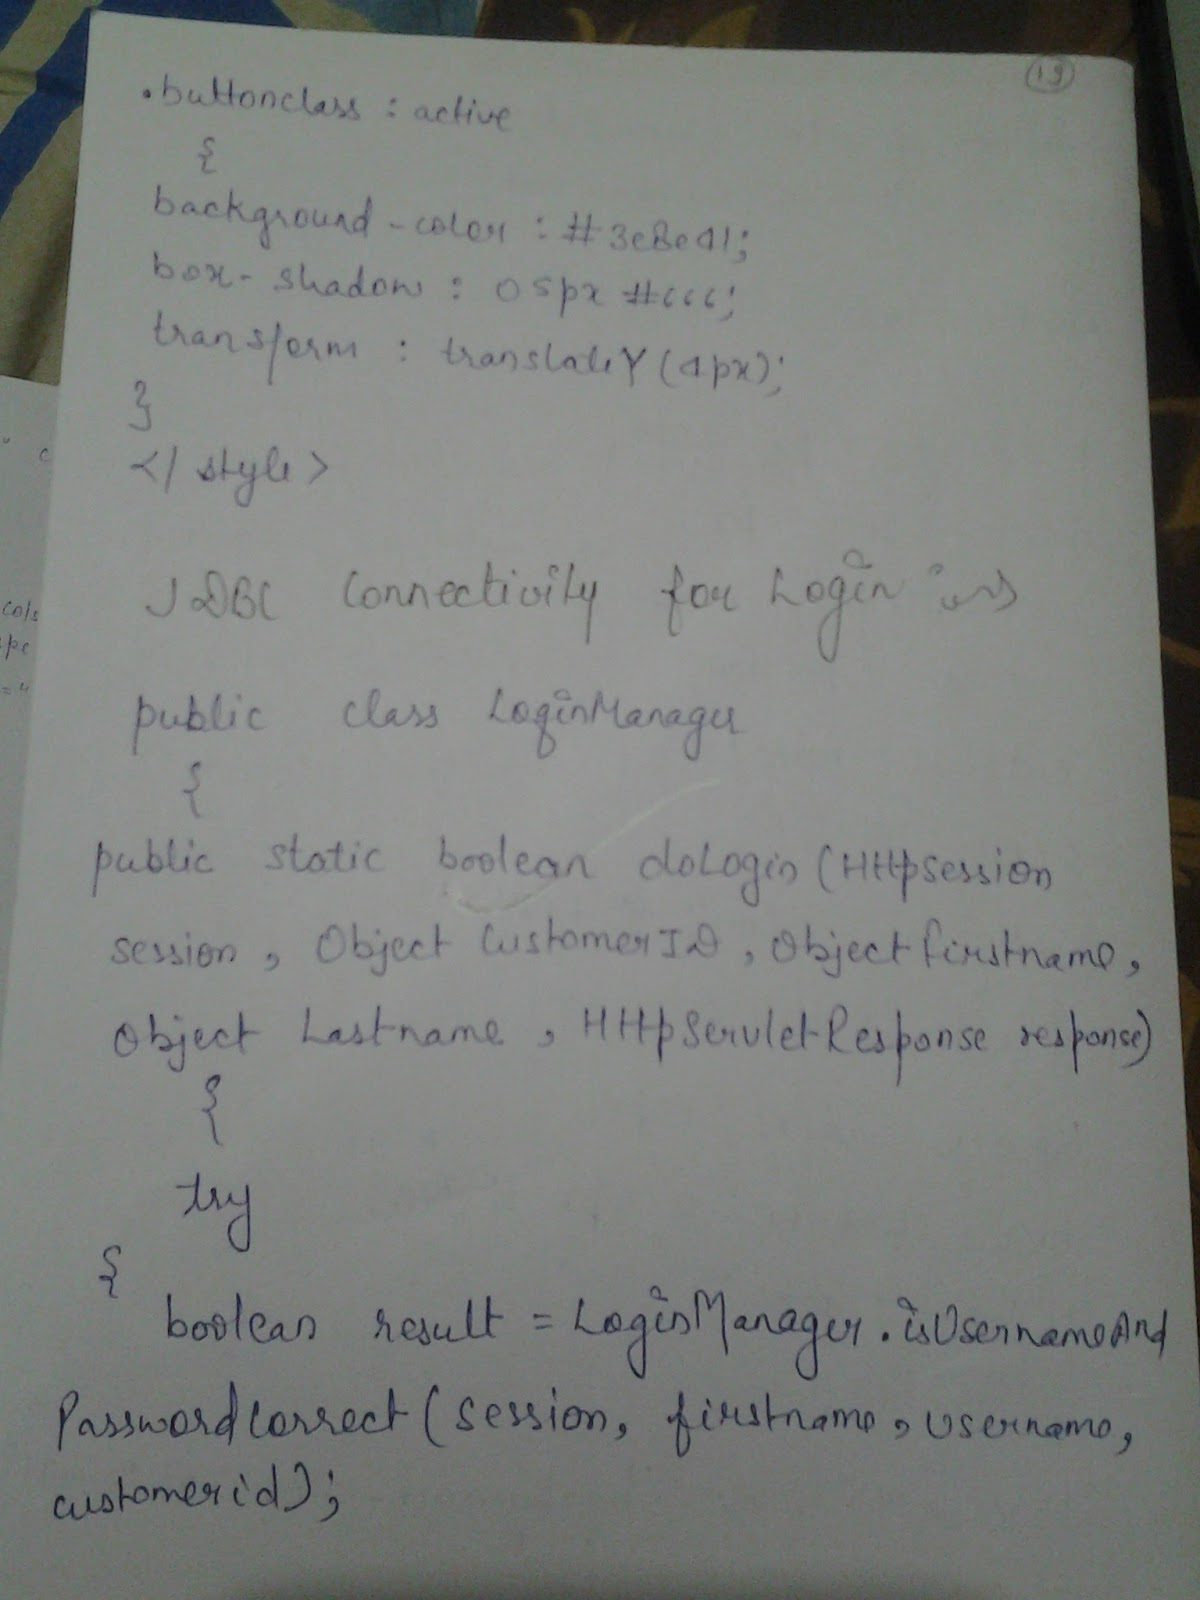 19
.buttonclass : active
{
background-color : #3e8e41;
box-shadow : 0 5px #ccc;
transform : translateY(4px);
}
</style>
JDBC Connectivity for Login :
public class LoginManager
{
public static boolean doLogin (HttpSession
session, Object CustomerID, Object firstname,
Object Lastname, HttpServletResponse response)
{
try
{
boolean result = LoginManager.isUsernameAnd
PasswordCorrect (session, firstname, username,
customerid);
cols
=“